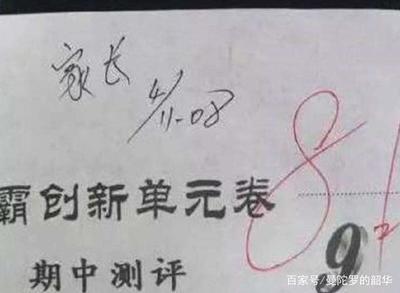 家长
4/11-08
霸创新单元卷
8
9
期中测评
百家号/曼陀罗的韶华